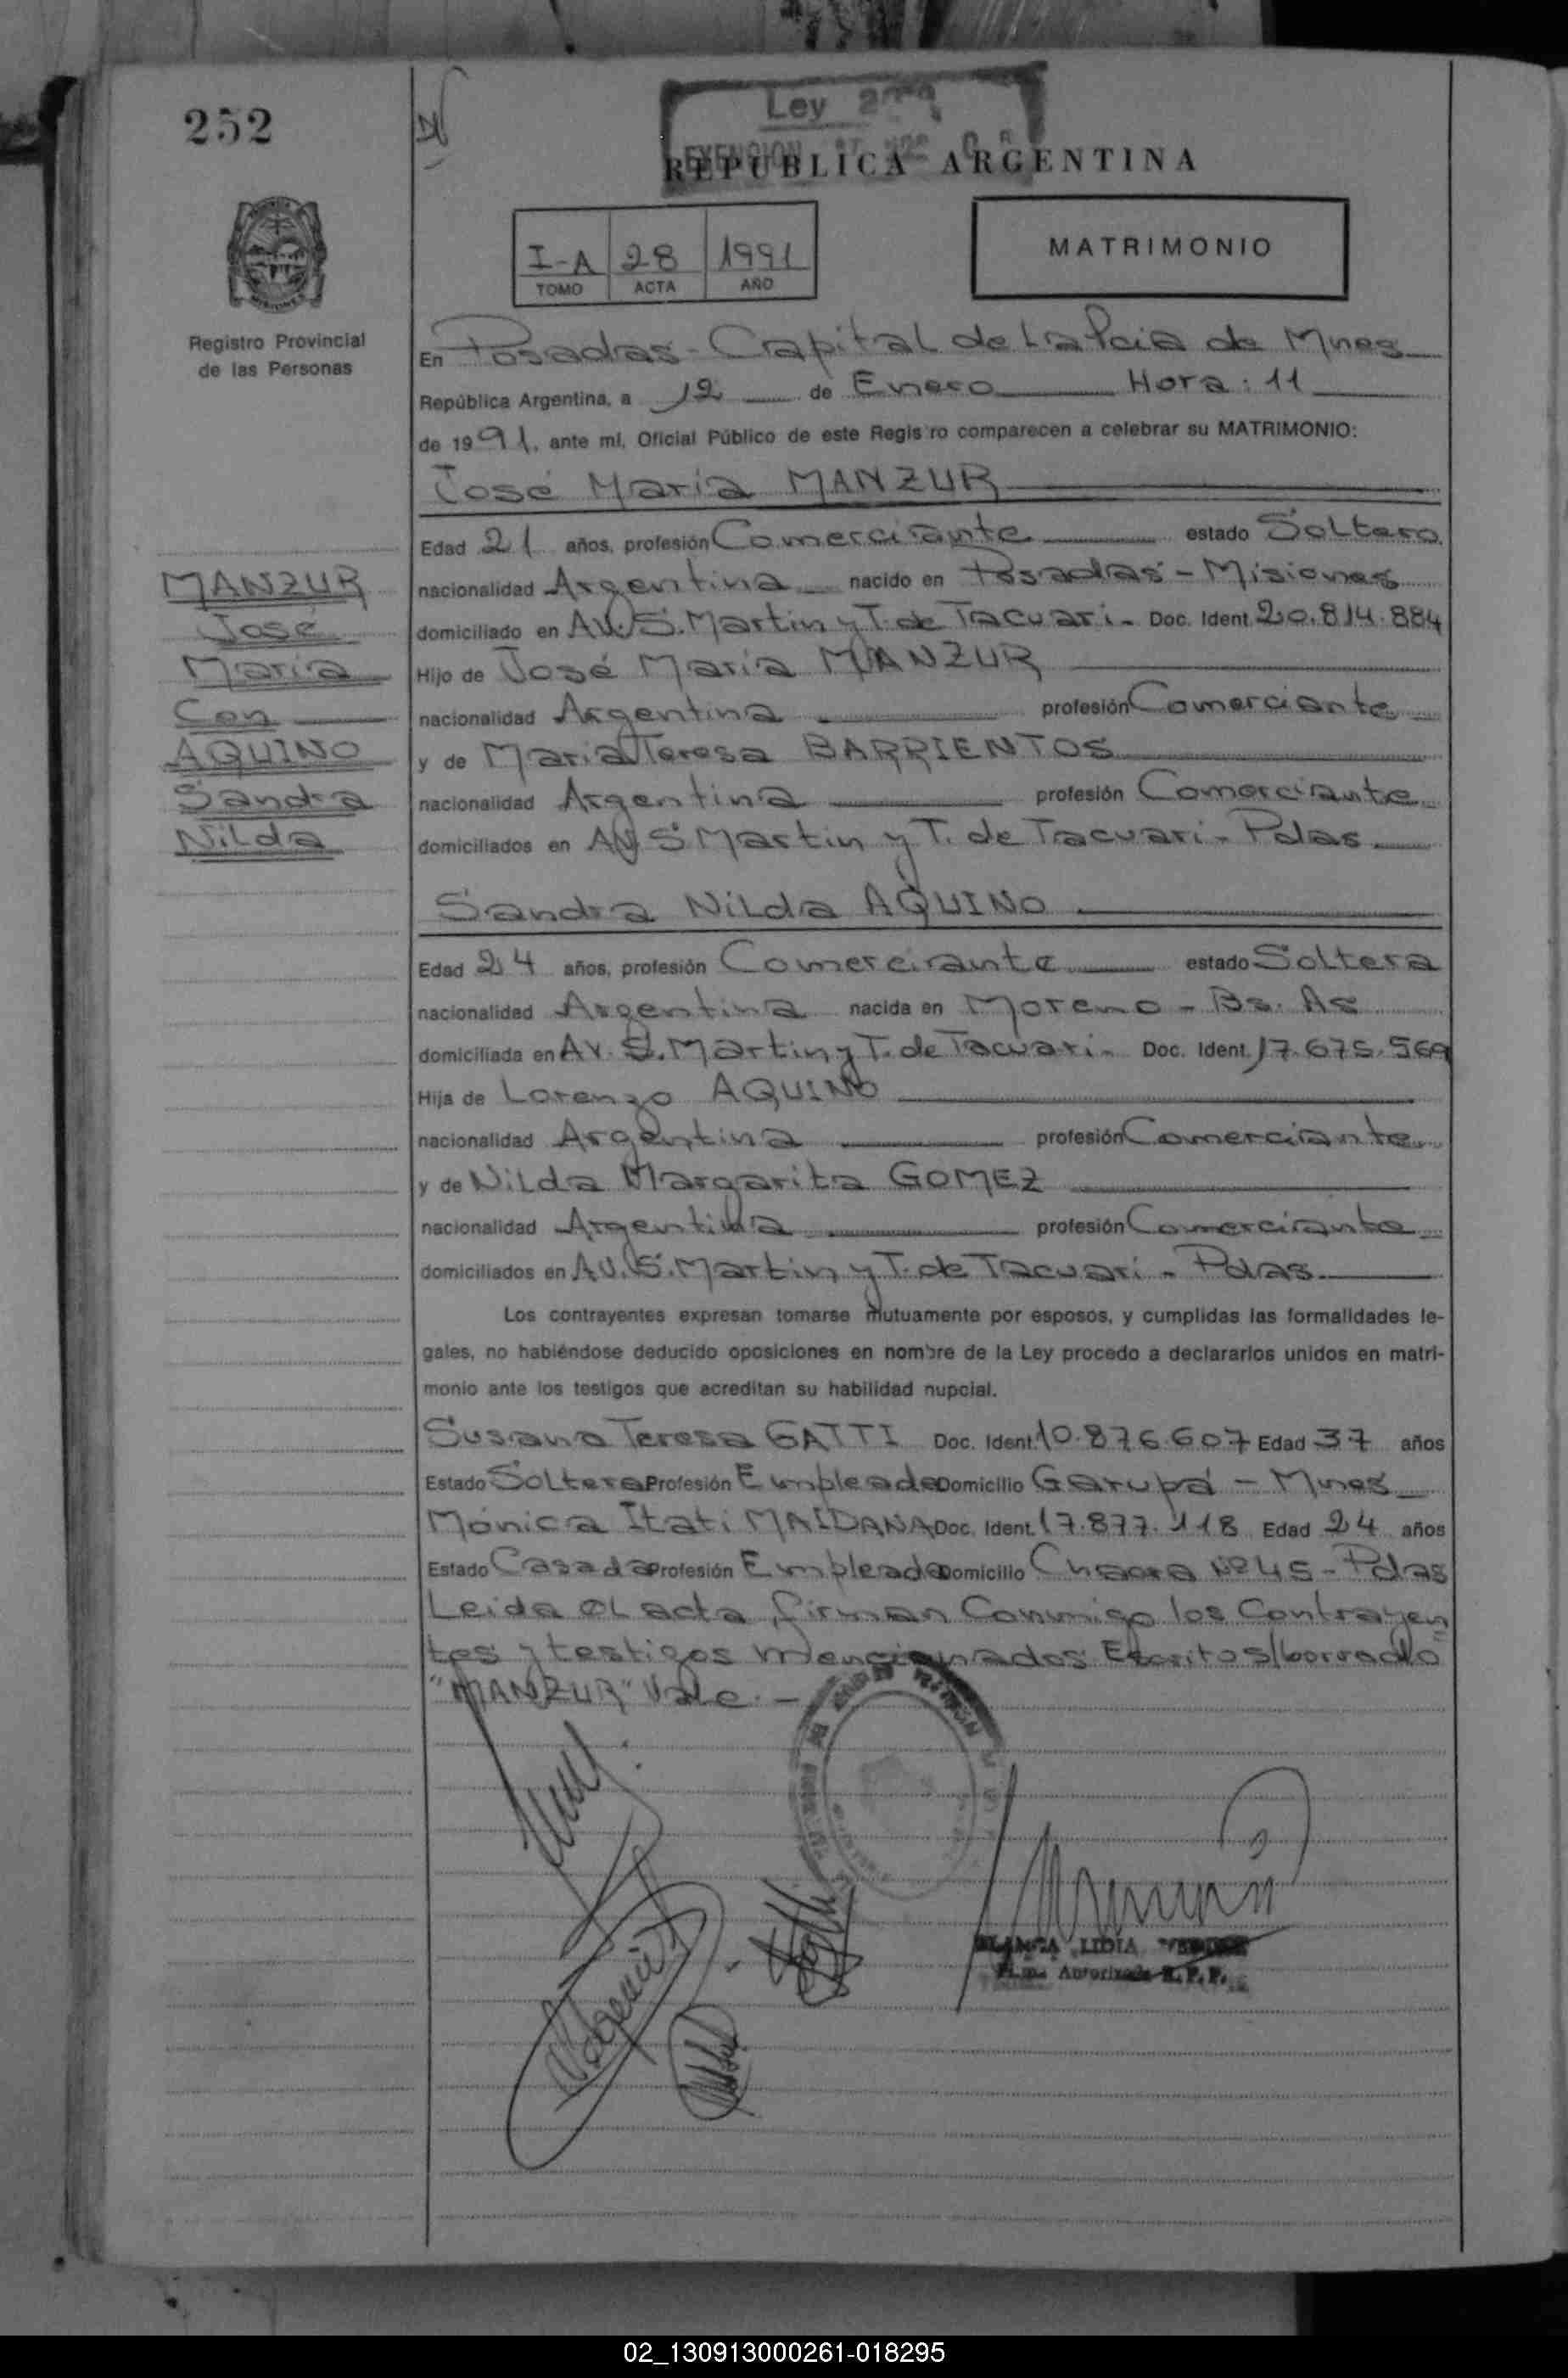 252
Ley
REPUBLICA ARGENTINA
I-A 28 1991
TOMO ACTA AÑO
MATRIMONIO
Registro Provincial
de las Personas
En Posadas - Capital de La Pcia de Mnes
República Argentina, a 12 de Enero Hora: 11
de 1991, ante mí, Oficial Público de este Regis ro comparecen a celebrar su MATRIMONIO:
José María MANZUR
Edad 21 años, profesión Comerciante estado Soltero
nacionalidad Argentina nacido en Posadas - Misiones
domiciliado en AV. S. Martin y T. de Tacuari - Doc. Ident. 20.814.884
Hijo de José María MANZUR
nacionalidad Argentina profesión Comerciante
y de María Teresa BARRIENTOS
nacionalidad Argentina profesión Comerciante
domiciliados en AV S Martin y T. de Tacuari - Pdas
MANZUR
José
María
Con
AQUINO
Sandra
Nilda
Sandra Nilda AQUINO
Edad 24 años, profesión Comerciante estado Soltera
nacionalidad Argentina nacida en Moreno - Bs. As
domiciliada en AV. S. Martin y T. de Tacuari - Doc. Ident. 17.675.569
Hija de Lorenzo AQUINO
nacionalidad Argentina profesión Comerciante
y de Nilda Margarita GOMEZ
nacionalidad Argentina profesión Comerciante
domiciliados en AV. S. Martin y T. de Tacuari - Pdas
Los contrayentes expresan tomarse mutuamente por esposos, y cumplidas las formalidades le-
gales, no habiéndose deducido oposiciones en nombre de la Ley procedo a declararlos unidos en matri-
monio ante los testigos que acreditan su habilidad nupcial.
Susana Teresa GATTI Doc. Ident. 10.876.607 Edad 37 años
Estado Soltera Profesión Empleada Domicilio Garupá - Mnes
Mónica Itati MAIDANA Doc. Ident. 17.877.118 Edad 24 años
Estado Casada Profesión Empleada Domicilio Chacra Nº 45 - Pdas
Leida el acta, firman Conmigo los Contrayen
tes y testigos mencionados Escrito s/borrado
"MANZUR" Vale. -
BLANCA LIDIA
Autorizada R. P. P.
02_130913000261-018295